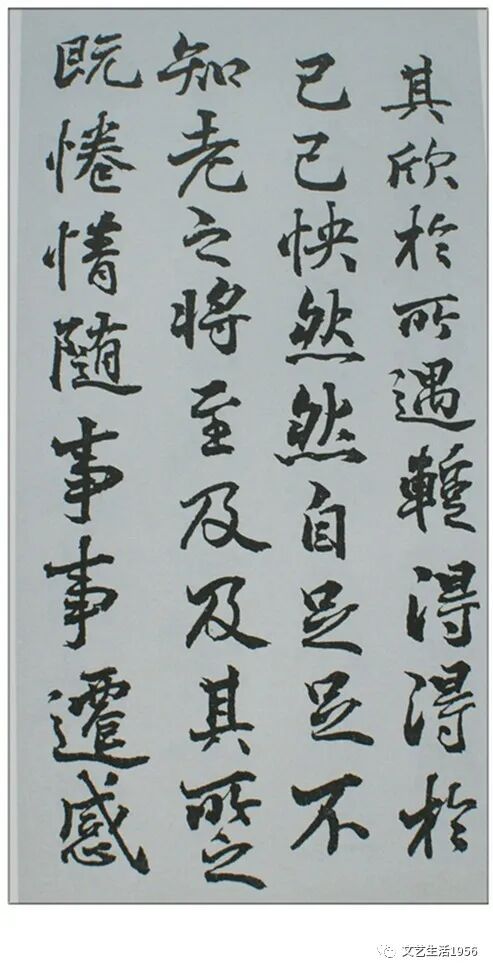 其欣於所遇暫得得於
己己怏然然自足足不
知老之將至及及其所之
既惓情隨事事遷感
文艺生活1956